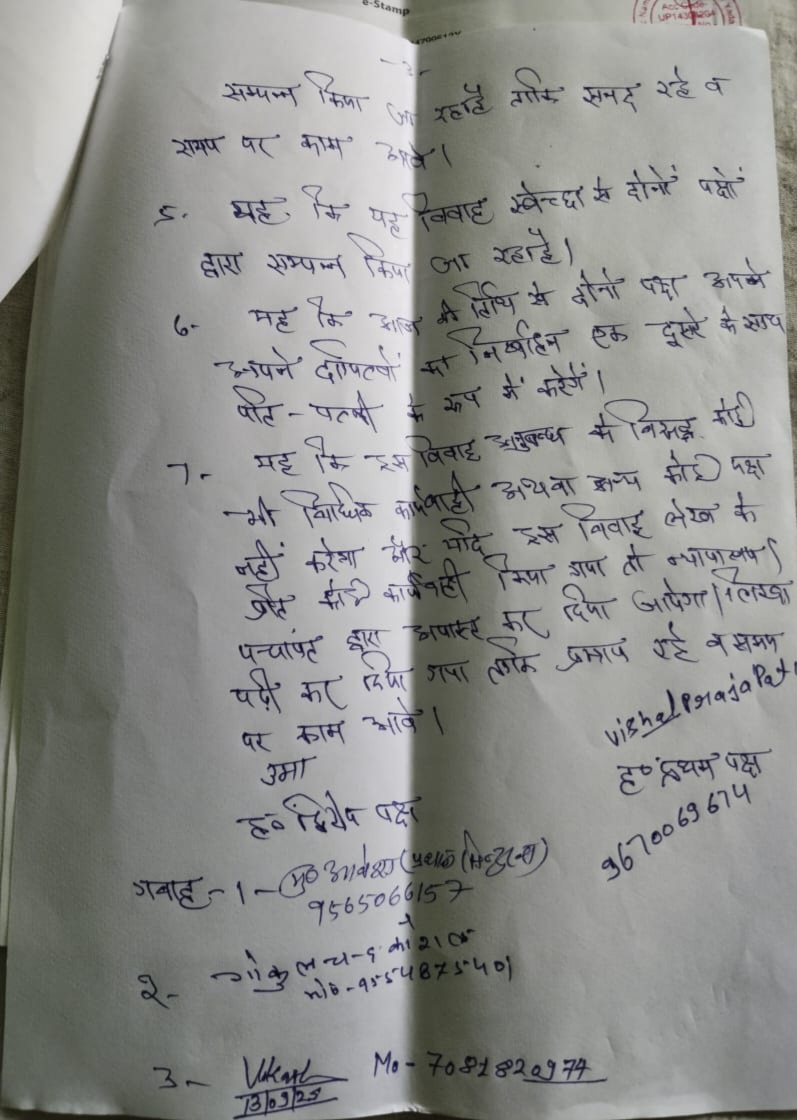 e-Stamp
- 3 -
सम्पन्न किया जा रहा है ताकि सनद रहे व
समय पर काम आवे।
5- यह कि यह विवाह स्वेच्छा से दोनों पक्षों
द्वारा सम्पन्न किया जा रहा है।
6- यह कि आज की तिथि से दोनों पक्ष अपने
अपने दायित्वों का निर्वाहन एक दूसरे के साथ
पति - पत्नी के रूप में करेगें।
7- यह कि इस विवाह अनुबन्ध के विरुद्ध कोई
भी विधिक कार्यवाही अथवा अन्य कोई पक्ष
नहीं करेगा और यदि इस विवाह लेख के
प्रति कोई कार्यवाही किया गया तो न्यायालय/
पन्चायत द्वारा अपास्त कर दिया जायेगा। लिखा
पढ़ी कर दिया गया ताकि प्रमाण रहे व समय
पर काम आवे।
उमा
ह० द्वितीय पक्ष
Vishal Prajapati
ह० प्रथम पक्ष
9670069674
गवाह - 1 -
9565066157
2- गोकुल चन्द
मो० - 9554875401
3- Mo - 7081820974
13/09/25